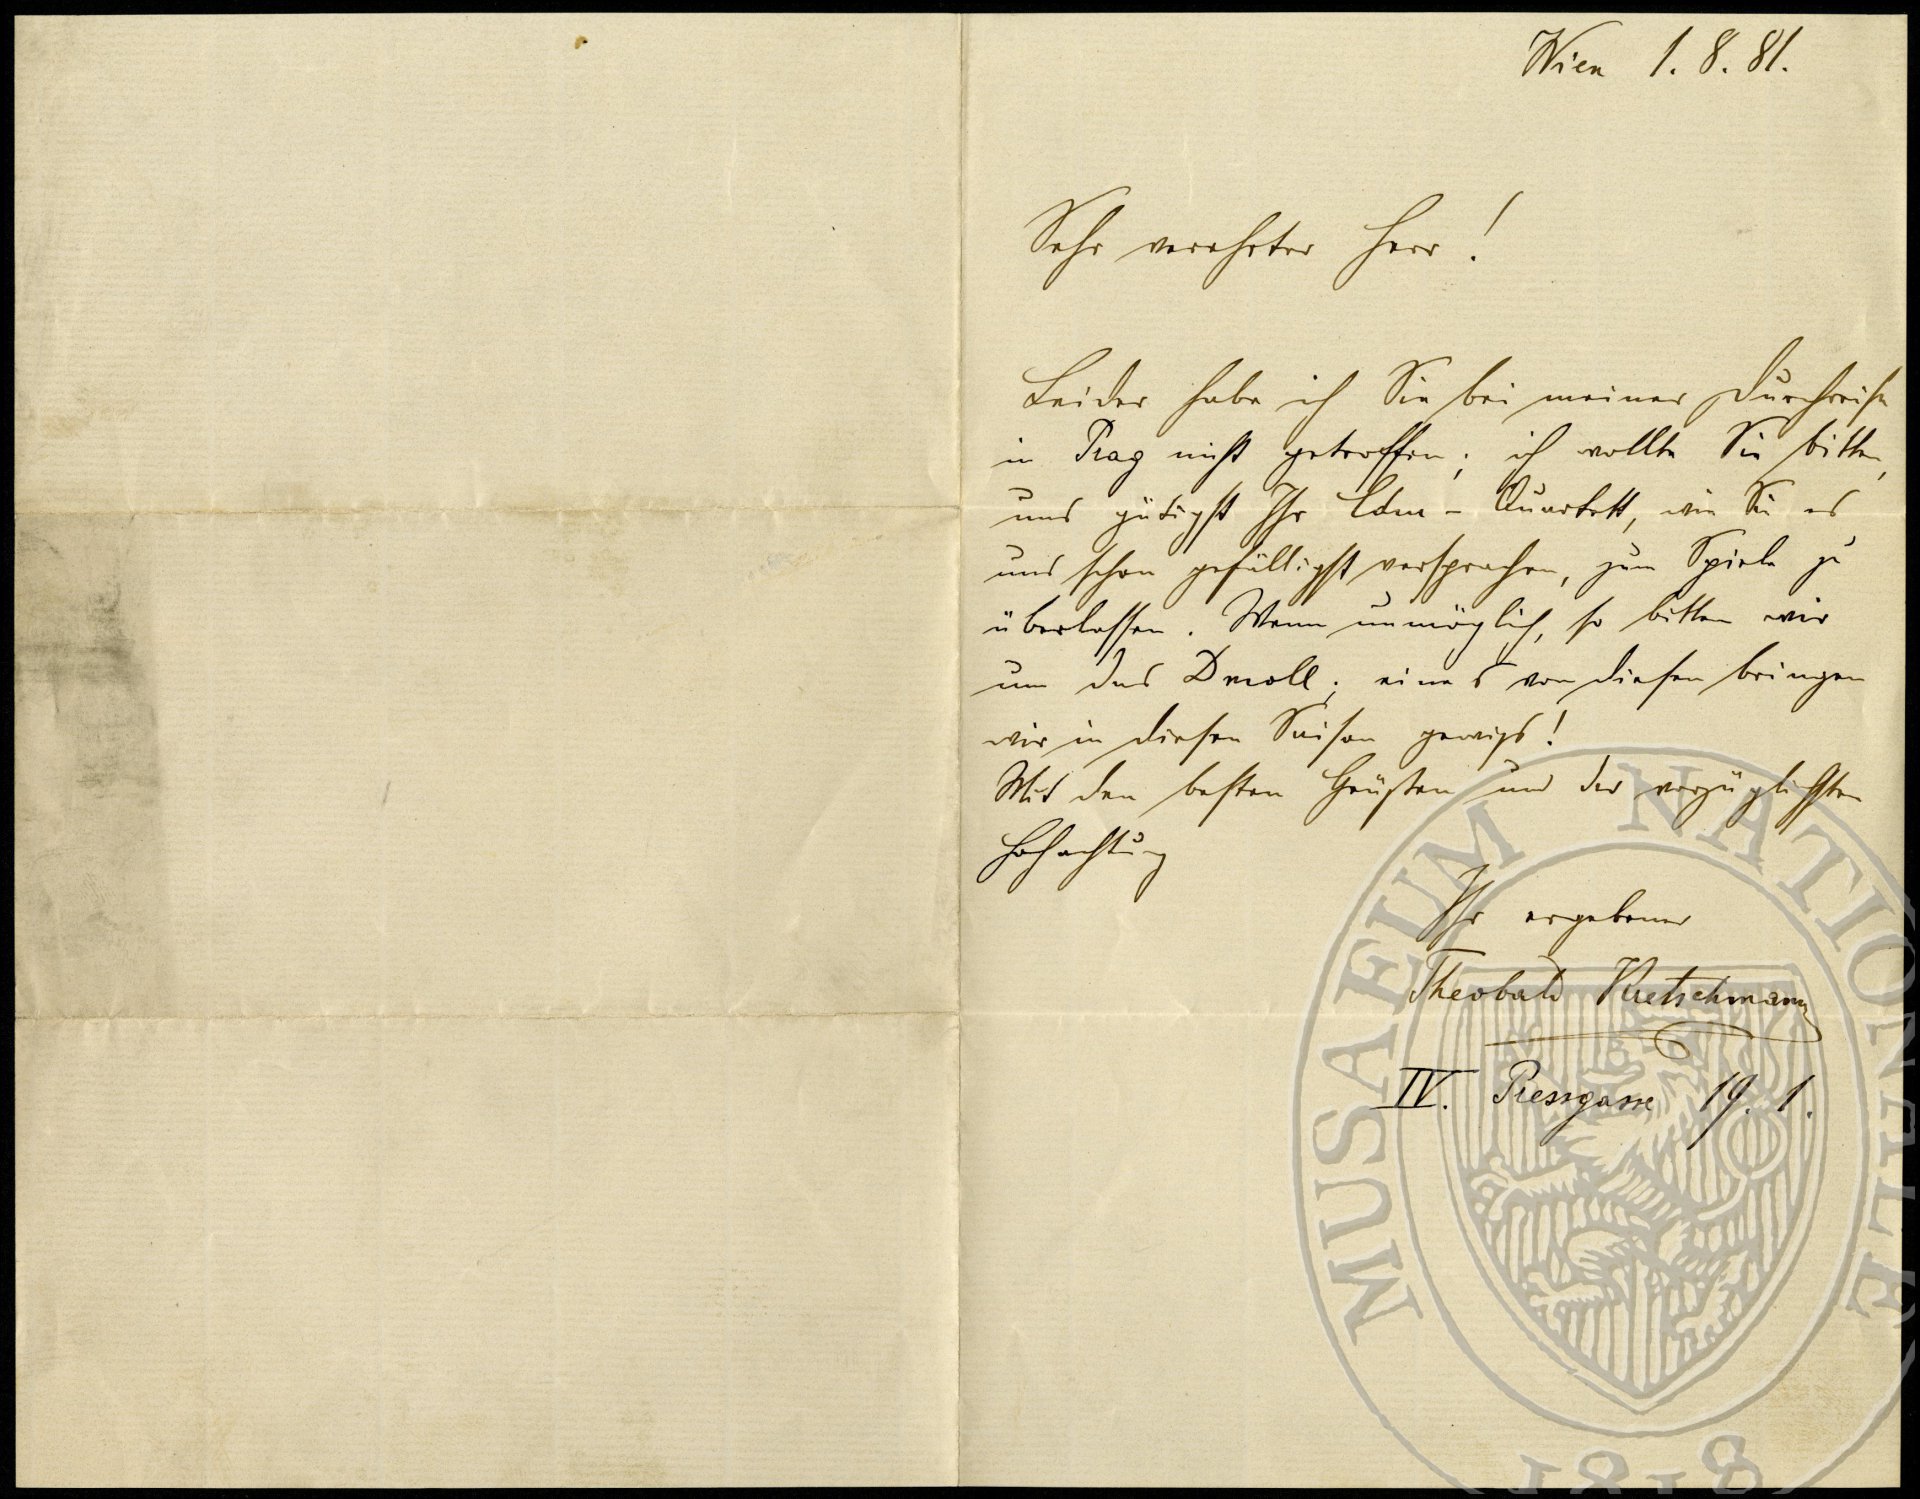 Wien 1. 8. 81.
Sehr verehrter Herr!
Leider habe ich Sie bei meiner Durchreise
in Prag nicht getroffen; ich wollte Sie bitten,
uns gütigst Ihr Edur - Quartett, wie Sie es
uns schon gefälligst versprachen, zum Spiele zu
überlassen. Wenn unmöglich, so bitten wir
um das Dmoll; eines von diesen bringen
wir in dieser Saison gewiss!
Mit den besten Grüßen und der vorzüglichsten
Hochachtung
Ihr ergebener
Theobald Kretschmann
IV. Pressgasse 19. 1.
MUSAEUM NATIONALE
1818